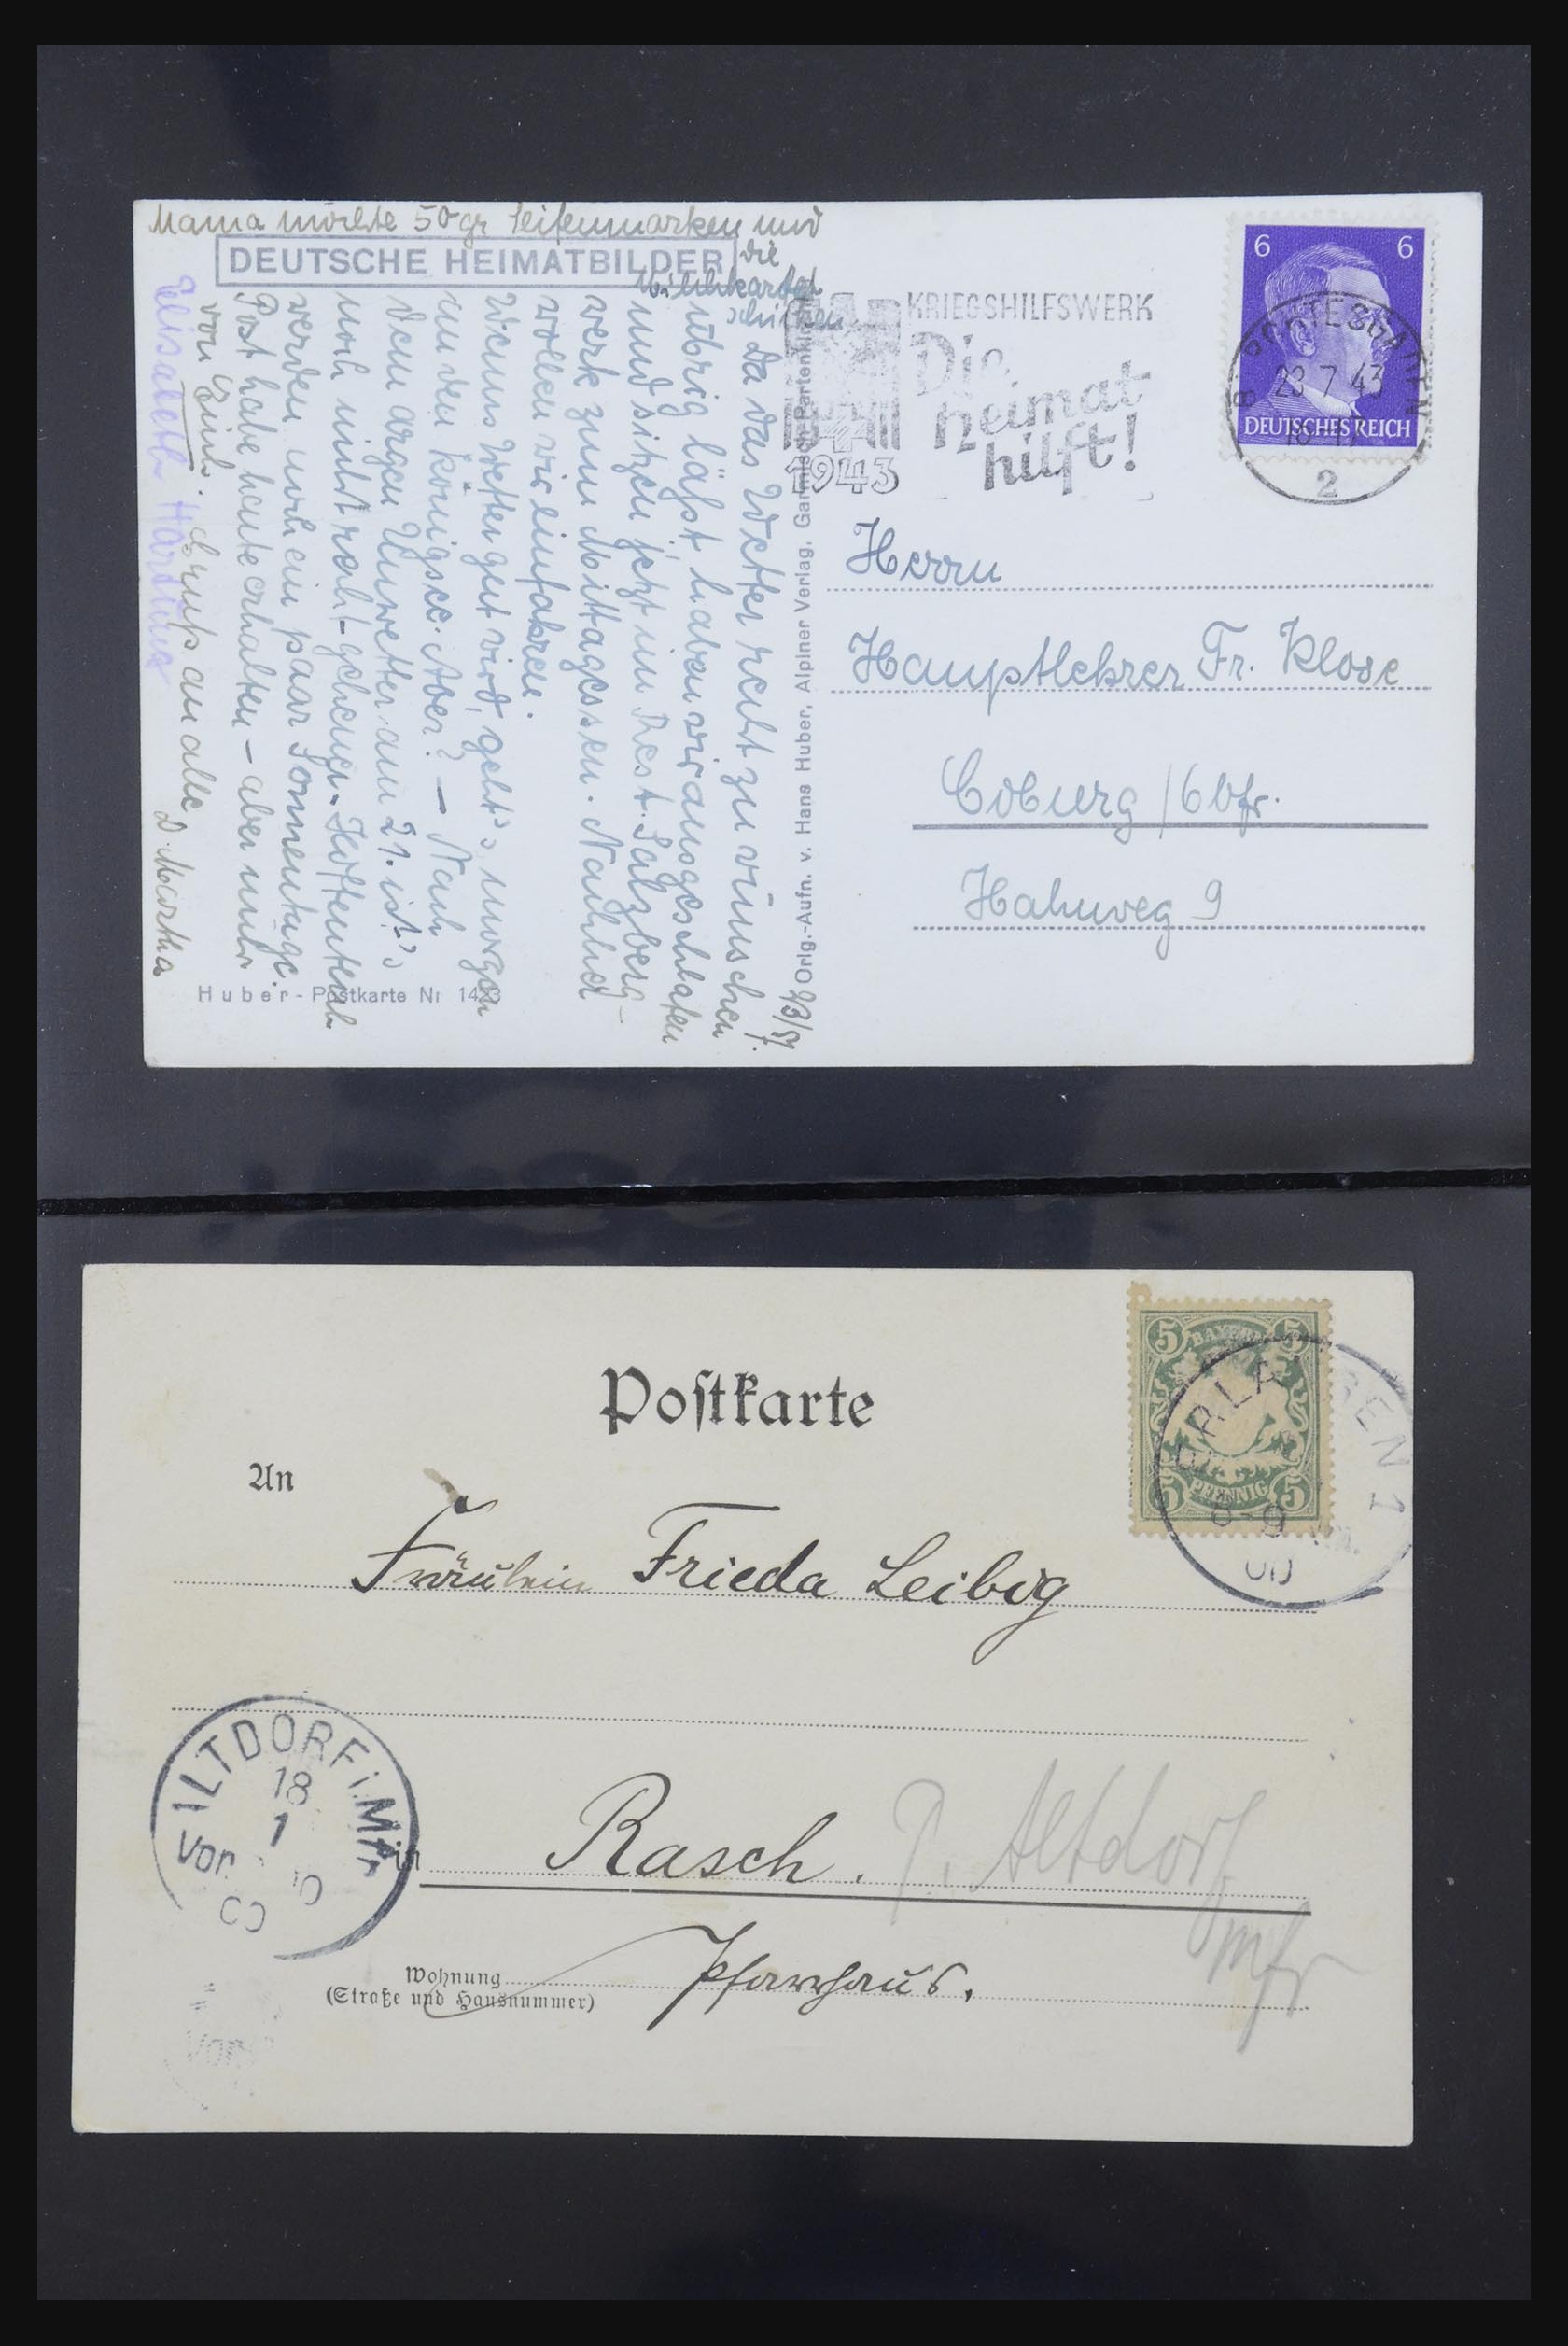 Mama möchte 50 gr Seifenmarken und
die
Milchkarte
schicken
DEUTSCHE HEIMATBILDER
23/7.
Da das Wetter recht zu wünschen
übrig läßt haben wir ausgeschlafen
und sitzen jetzt im Rest. Salzberg-
werk zum Mittagessen. Nachher
wollen wir einfahren.
Wenns Wetter gut wird, geht's morgen
an den Königsee. Aber? – Nach
dem argen Unwetter am 21. ist's
noch nicht recht gehener. Hoffentlich
werden noch ein paar Sonnentage.
Post habe heute erhalten – aber nur
von Euch. Gruß an alle D. Martha
Elisabeth
Huber-Postkarte Nr 1423
Orig.-Aufn. v. Hans Huber, Alpiner Verlag, Garmisch-Partenkirchen
1943
KRIEGSHILFSWERK
Die
Heimat
hilft!
6 6
DEUTSCHES REICH
BERCHTESGADEN
23.7.43
2
Herrn
Hauptlehrer Fr. Klose
Coburg / Obfr.
Hahnweg 9
Postkarte
An
5 BAYERN 5
5 PFENNIG 5
ERLANGEN 1
8-9
00
Fräulein Frieda Leibig
ALTDORF i. Mfr
18
1
Vor.
00
in Rasch. P. Altdorf
Mfr
Wohnung
(Straße und Hausnummer)
Pfarrhaus.
Vor